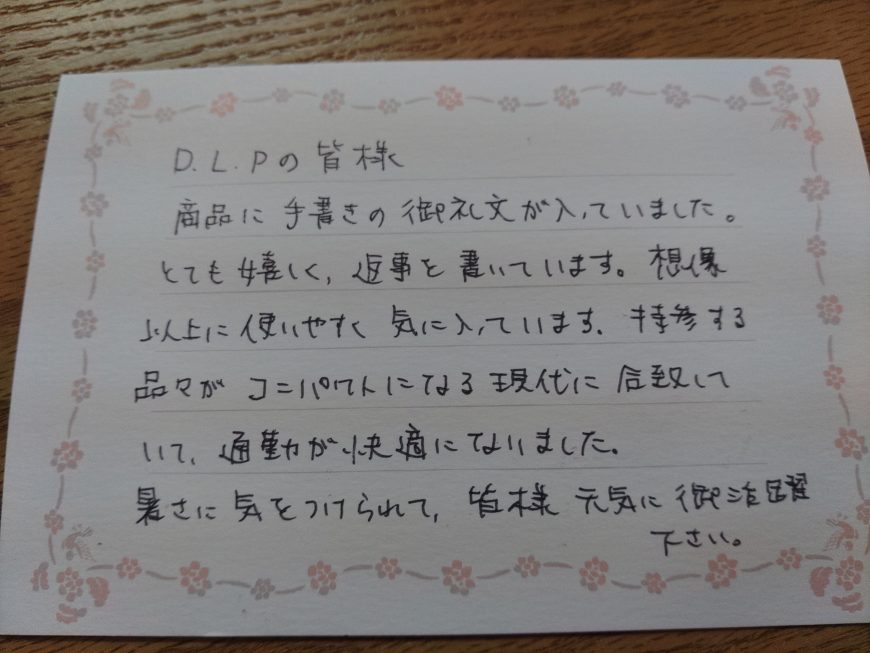 D.L.Pの皆様
商品に手書きの御礼文が入っていました。
とても嬉しく、返事を書いています。想像
以上に使いやすく気に入っています。持参する
品々がコンパクトになる現代に合致して
いて、通勤が快適になりました。
暑さに気をつけられて、皆様元気に御活躍
下さい。